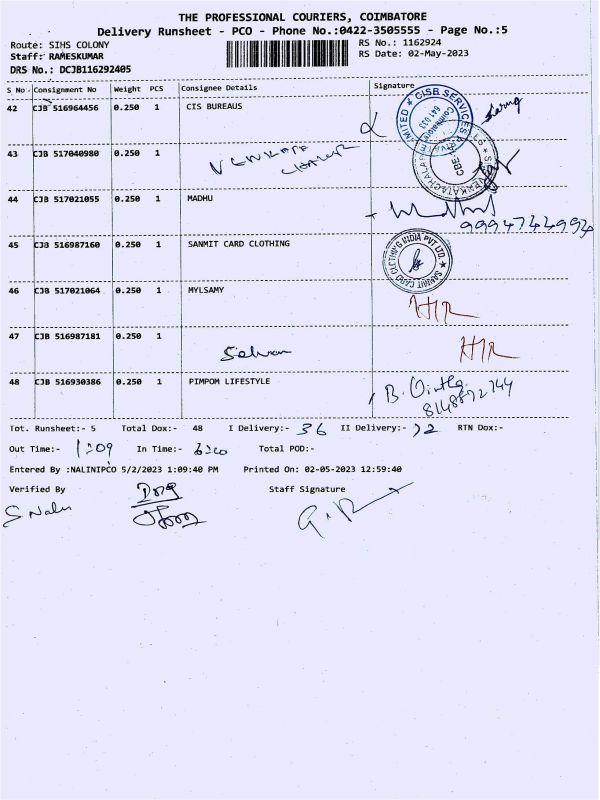 THE PROFESSIONAL COURIERS, COIMBATORE
Delivery Runsheet - PCO - Phone No.:0422-3505555 - Page No.:5
Route: SIHS COLONY RS No.: 1162924
Staff: RAMESKUMAR RS Date: 02-May-2023
DRS No.: DCJB116292405
S No Consignment No Weight PCS Consignee Details Signature
42 CJB 516964456 0.250 1 CIS BUREAUS
CISB SERVICES
641 033
Coimbatore
43 CJB 517040980 0.250 1
CBE
44 CJB 517021055 0.250 1 MADHU Madhu
9994744994
45 CJB 516987160 0.250 1 SANMIT CARD CLOTHING
SANMIT CARD CLOTHING INDIA PVT LTD.
46 CJB 517021064 0.250 1 MYLSAMY H/R
47 CJB 516987181 0.250 1 Selvan H/R
48 CJB 516930386 0.250 1 PIMPOM LIFESTYLE B.
Tot. Runsheet:- 5 Total Dox:- 48 I Delivery:- 36 II Delivery:- RTN Dox:-
Out Time:- 1:09 In Time:- Total POD:-
Entered By :NALINIPCO 5/2/2023 1:09:40 PM Printed On: 02-05-2023 12:59:40
Verified By Staff Signature